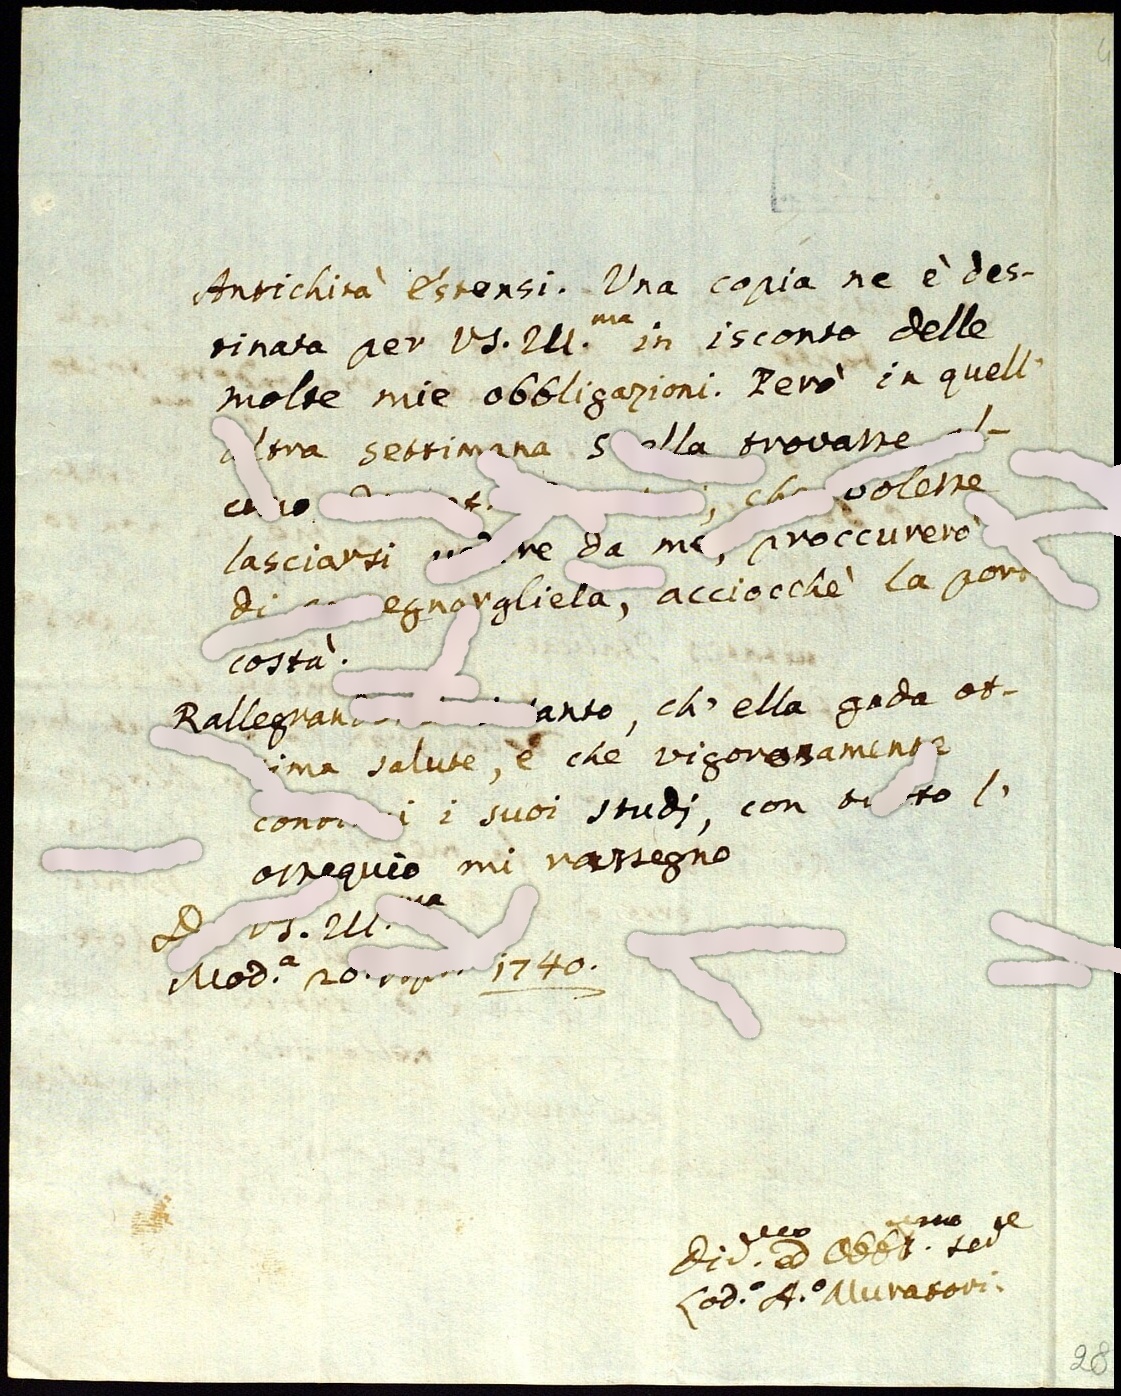 Antichità Estensi. Una copia ne è des-
tinata per VS. Ill.ma in isconto delle
molte mie obbligazioni. Però in quell'
altra settimana trovasse al-
cuno volesse
lasciarsi da me, proccurerò
di acciocchè la
costà.
ch' ella goda ot-
tima salute, e che vigorosamente
i suoi studj, con tutto l'
ossequio mi rassegno
Di VS. Ill.ma
Mod.a 20. 1740.
Div.mo ed Obbl.mo
Lod.o A.o Muratori.
28